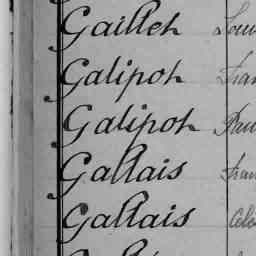 Gaillet Loui
Galipot Fran
Galipot Paul
Gallais Fran
Gallais Céle